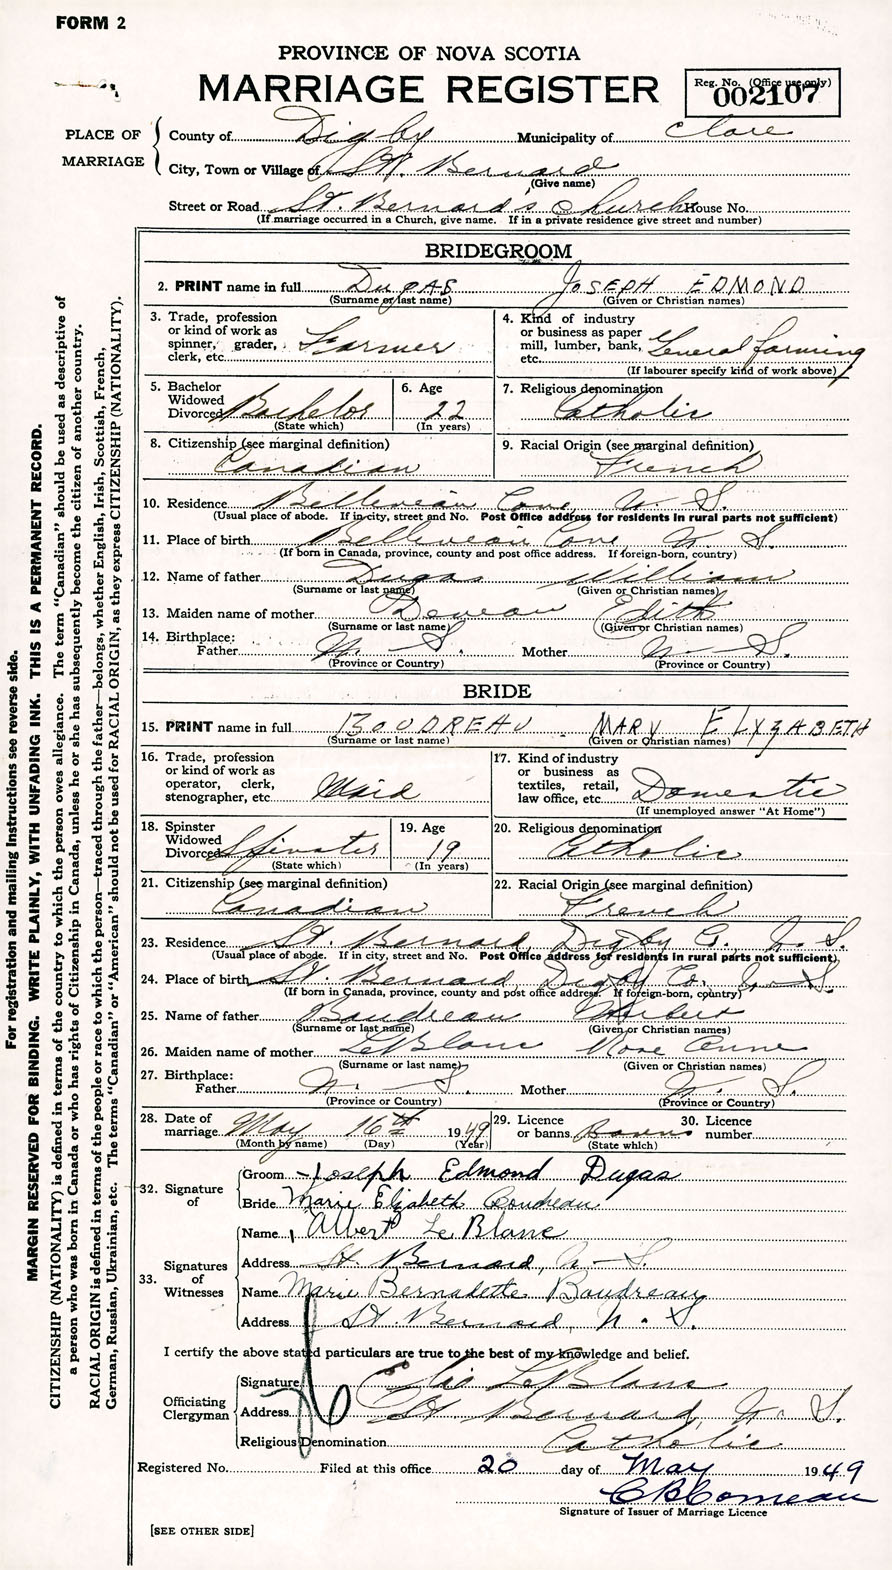 FORM 2
PROVINCE OF NOVA SCOTIA
MARRIAGE REGISTER
Reg. No. (Office use only)
002107
PLACE OF MARRIAGE
County of Digby Municipality of Clare
City, Town or Village of St. Bernard
(Give name)
Street or Road St. Bernard's Church House No.
(If marriage occurred in a Church, give name. If in a private residence give street and number)
BRIDEGROOM
2. PRINT name in full DUGAS JOSEPH EDMOND
(Surname or last name) (Given or Christian names)
3. Trade, profession or kind of work as spinner, grader, clerk, etc. Farmer
4. Kind of industry or business as paper mill, lumber, bank, etc. General farming
(If labourer specify kind of work above)
5. Bachelor Widowed Divorced Bachelor
(State which)
6. Age 22
(In years)
7. Religious denomination
Catholic
8. Citizenship (see marginal definition)
Canadian
9. Racial Origin (see marginal definition)
French
10. Residence Belliveau Cove N. S.
(Usual place of abode. If in city, street and No. Post Office address for residents in rural parts not sufficient)
11. Place of birth Belliveau Cove N. S.
(If born in Canada, province, county and post office address. If foreign-born, country)
12. Name of father Dugas William
(Surname or last name) (Given or Christian names)
13. Maiden name of mother Deveau Edith
(Surname or last name) (Given or Christian names)
14. Birthplace:
Father N. S. Mother N. S.
(Province or Country) (Province or Country)
BRIDE
15. PRINT name in full BOUDREAU MARY ELYZABETH
(Surname or last name) (Given or Christian names)
16. Trade, profession or kind of work as operator, clerk, stenographer, etc. Maid
17. Kind of industry or business as textiles, retail, law office, etc. Domestic
(If unemployed answer "At Home")
18. Spinster Widowed Divorced Spinster
(State which)
19. Age 19
(In years)
20. Religious denomination
Catholic
21. Citizenship (see marginal definition)
Canadian
22. Racial Origin (see marginal definition)
French
23. Residence St. Bernard, Digby Co. N. S.
(Usual place of abode. If in city, street and No. Post Office address for residents in rural parts not sufficient)
24. Place of birth St. Bernard, Digby Co. N. S.
(If born in Canada, province, county and post office address. If foreign-born, country)
25. Name of father Boudreau
(Surname or last name) (Given or Christian names)
26. Maiden name of mother LeBlanc Rose Anne
(Surname or last name) (Given or Christian names)
27. Birthplace:
Father N. S. Mother N. S.
(Province or Country) (Province or Country)
28. Date of marriage May 16th 1949
(Month by name) (Day) (Year)
29. Licence or banns Banns
(State which)
30. Licence number
32. Signature of
Groom Joseph Edmond Dugas
Bride Marie Elizabeth Boudreau
33. Signatures of Witnesses
Name Albert Le Blanc
Address St. Bernard, N. S.
Name Marie Bernadette Boudreau
Address St. Bernard, N. S.
I certify the above stated particulars are true to the best of my knowledge and belief.
Officiating Clergyman
Signature Elie LeBlanc
Address St Bernard, N. S.
Religious Denomination Catholic
Registered No. Filed at this office 20 day of May 1949
C B Comeau
Signature of Issuer of Marriage Licence
[SEE OTHER SIDE]
For registration and mailing Instructions see reverse side.
MARGIN RESERVED FOR BINDING. WRITE PLAINLY, WITH UNFADING INK. THIS IS A PERMANENT RECORD.
CITIZENSHIP (NATIONALITY) is defined in terms of the country to which the person owes allegiance. The term "Canadian" should be used as descriptive of
a person who was born in Canada or who has rights of Citizenship in Canada, unless he or she has subsequently become the citizen of another country.
RACIAL ORIGIN is defined in terms of the people or race to which the person—traced through the father—belongs, whether English, Irish, Scottish, French,
German, Russian, Ukrainian, etc. The terms "Canadian" or "American" should not be used for RACIAL ORIGIN, as they express CITIZENSHIP (NATIONALITY).